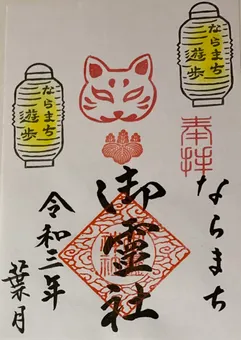 ならまち遊歩
ならまち遊歩
奉拝
ならまち
御霊社
令和三年
葉月